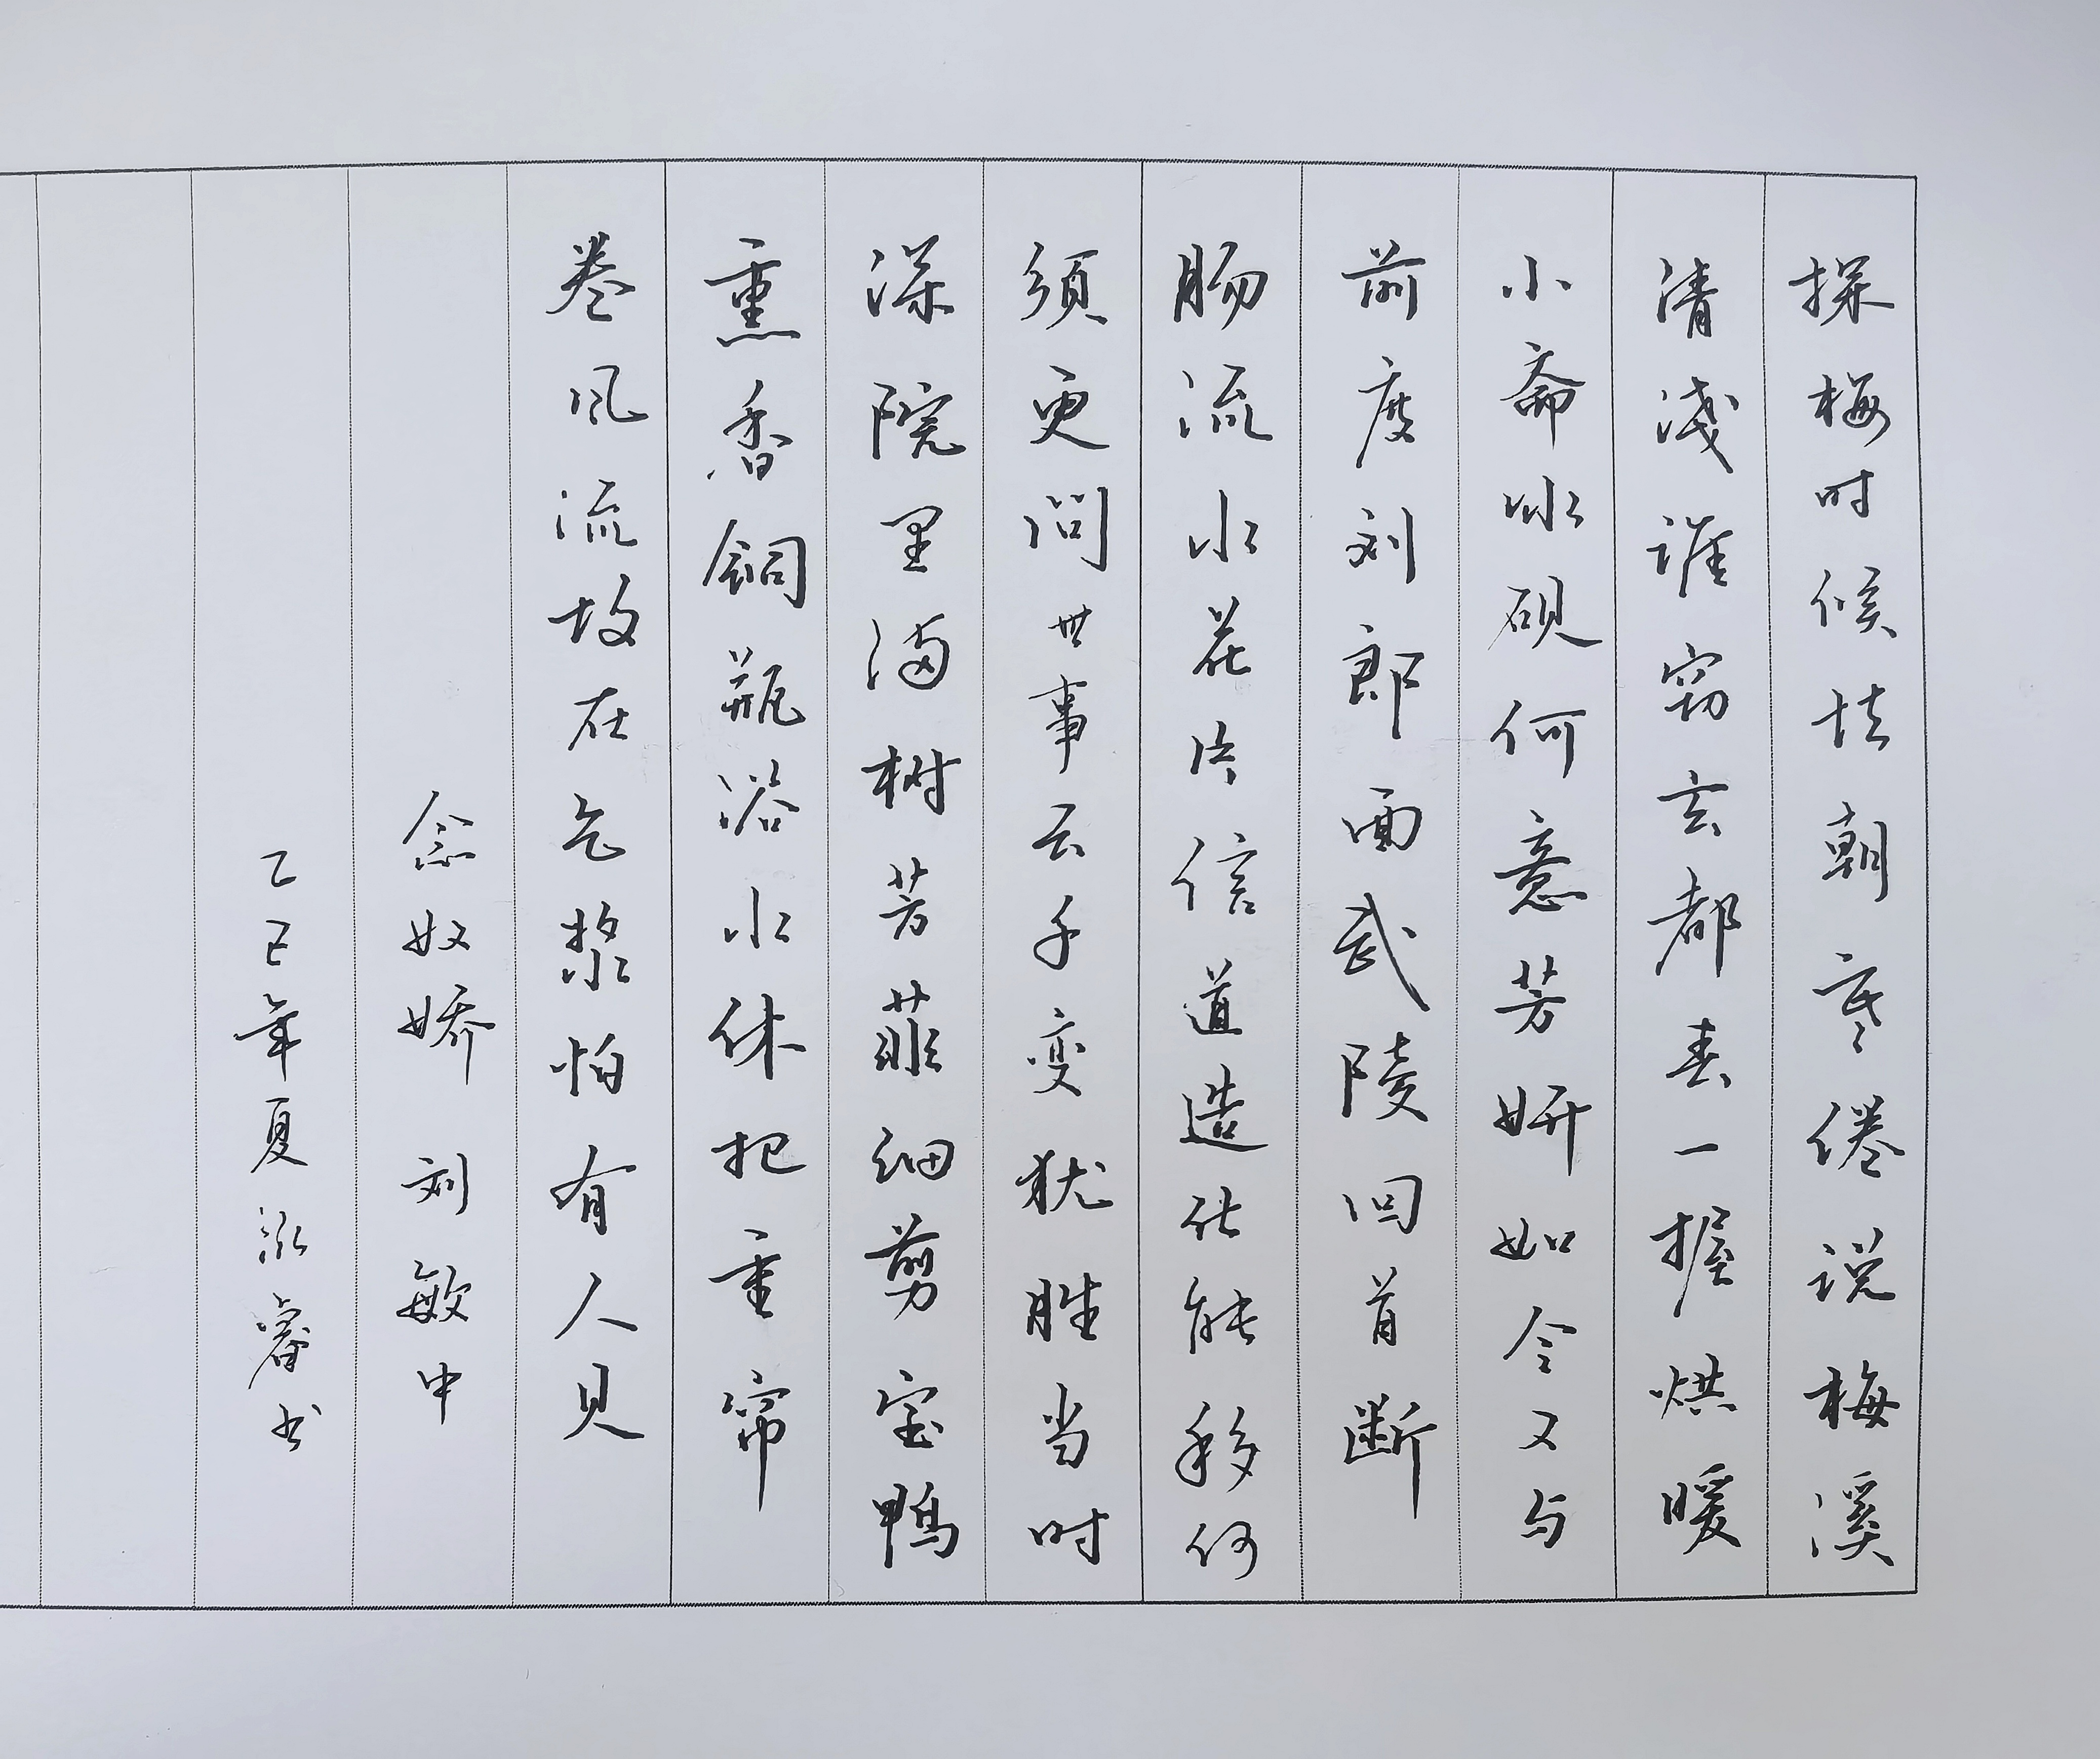 探梅时候怯朝寒倦说梅溪
清浅谁窃玄都春一握烘暖
小斋冰砚何意芳妍如今又与
前度刘郎面武陵回首断
肠流水花片信道造化能移何
须更问世事云千变犹胜当时
深院里满树芳菲细剪宝鸭
熏香铜瓶浴水休把重帘
卷风流故在乞浆怕有人见
念奴娇 刘敏中
乙巳年夏泳睿书